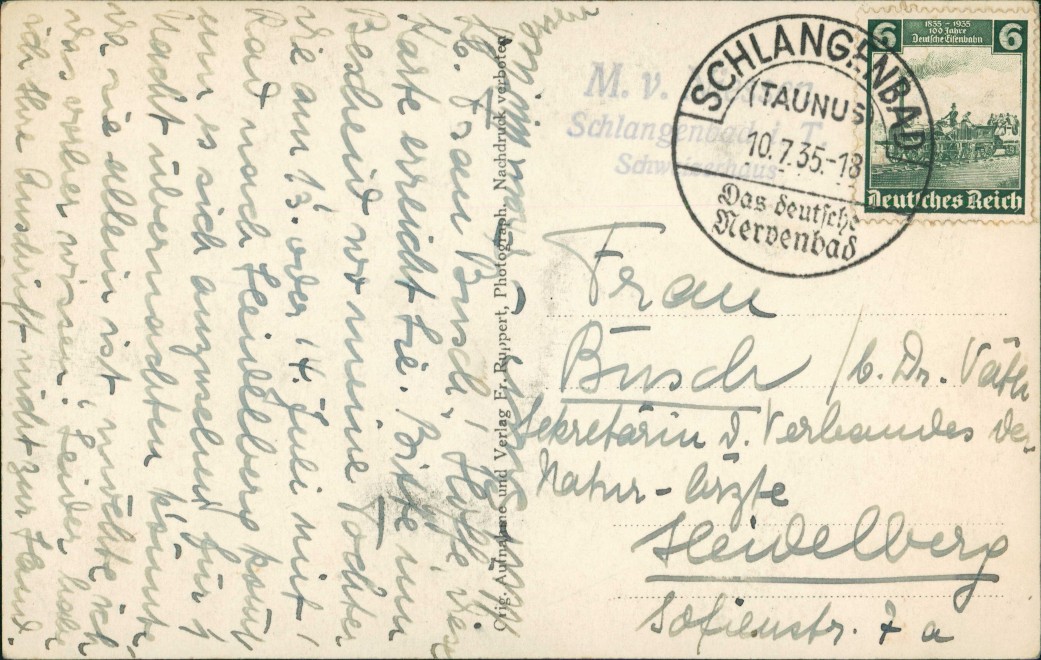 6 1835-1935 6
100 Jahre
Deutsche Eisenbahn
Deutsches Reich
SCHLANGENBAD
(TAUNUS)
10.7.35.-18
Das deutsche
Nervenbad
M. v.
Schlangenbad i. T.
Schweizerhaus
Frau
Busch / b. Dr. Väth
Sekretärin d. Verbandes der
Natur-Ärzte
Heidelberg
Sofienstr. 7a
Orig. Aufnahme und Verlag Fr. Ruppert, Photograph, Nachdruck verboten
Frau Busch! Hoffe, diese
Karte erreicht Sie. Bitte um
Bescheid wo meine Tochter
die am 13. oder 14. Juli mit
Rad nach Heidelberg kommt
um es sich anzusehen für 1
Nacht übernachten könnte.
Da sie allein ist möchte ich
das vorher wissen! Leider habe
ich Ihre Anschrift nicht zur Hand.